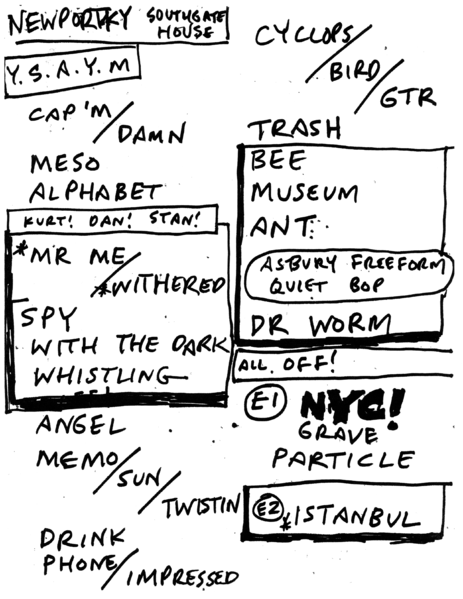 NEWPORTKY SOUTHGATE HOUSE
Y.S.A.Y.M
CAP'M/DAMN
MESO
ALPHABET
KURT! DAN! STAN!
*MR ME/*WITHERED
SPY
WITH THE DARK
WHISTLING
ANGEL
MEMO/SUN/TWISTIN
DRINK
PHONE/IMPRESSED
CYCLOPS/BIRD/GTR
TRASH
BEE
MUSEUM
ANT
ASBURY FREEFORM
QUIET BOP
DR WORM
ALL OFF!
E1 NYC!
GRAVE
PARTICLE
E2 *ISTANBUL